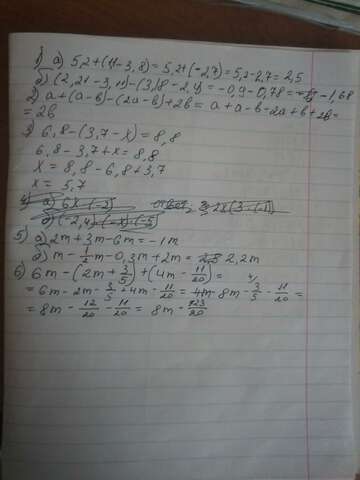 1) а) 5,2+(1,1-3,8)=5,2+(-2,7)=5,2-2,7=2,5
б) (2,21-3,11)-(3,18-2,4)=-0,9-0,78=-1,68
2) a+(a-b)-(2a-b)+2b=a+a-b-2a+b+2b=
=2b
3) 6,8-(3,7-x)=8,8
6,8-3,7+x=8,8
x=8,8-6,8+3,7
x=5,7
5) а) 2m+3m-6m=-1m
б) m-½m-0,3m+2m=2,2m
6) 6m-(2m+3/5)+(4m-11/20)=
=6m-2m-3/5+4m-11/20=8m-3/5-11/20=
=8m-12/20-11/20=8m-23/20